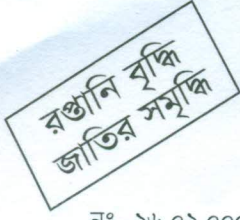 রপ্তানি বৃদ্ধি
জাতির সমৃদ্ধি
নং